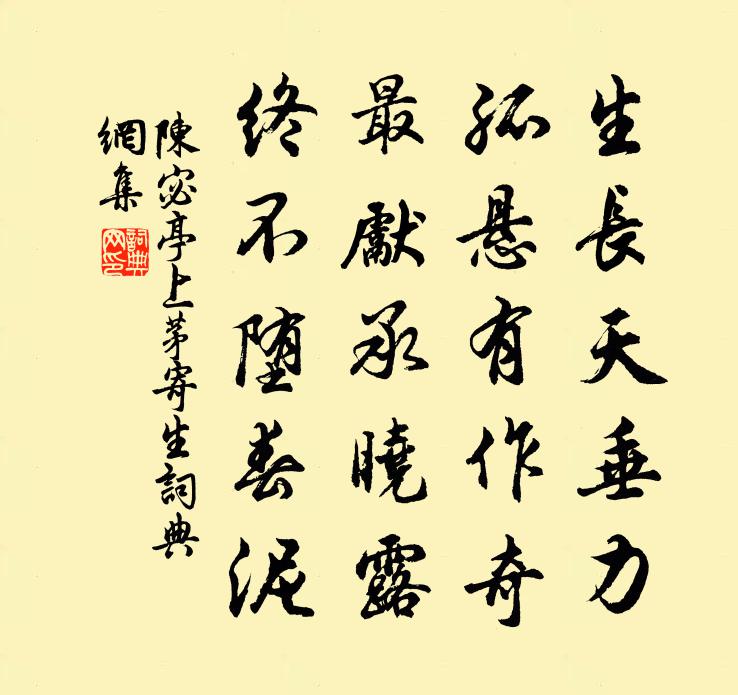 生長天垂力
孤懸有作奇
最獻承曉露
終不堕春泥
陳宓亭上茅寄生詞典
網集
詞典網印